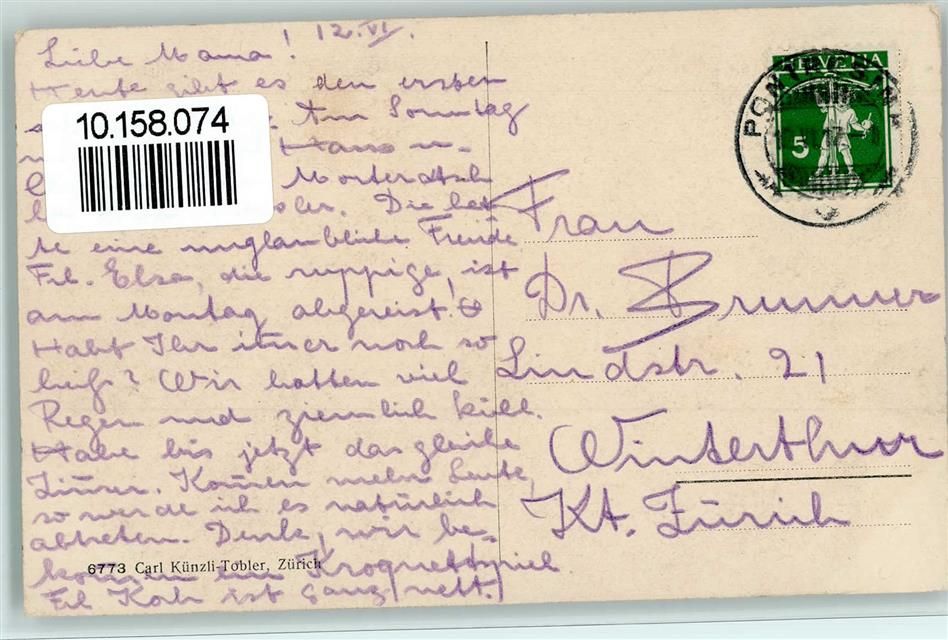 12. VI.
Liebe Mama!
Heute gibt es den ersten
Am Sonntag
Hans u.
Morteratsch
Die hat-
te eine unglaubliche Freude
Frl. Elsa, die ruppige, ist
am Montag abgereist.
Habt Ihr im̅er noch so
heiss? Wir hatten viel
Regen und ziemlich kühl.
Habe bis jetzt das gleiche
Zim̅er. Kom̅en mehr Leute,
so werde ich es natürlich
abtreten. Denk, wir be-
kommen ein Kroquettspiel.
Frl Koch ist ganz nett.
10.158.074
6773 Carl Künzli-Tobler, Zürich
HELVETIA
5
PONTRESINA
Frau
Dr. Brunner
Lindstr. 21
Winterthur
Kt. Zürich